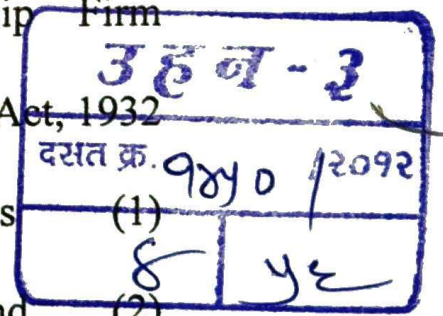 ip Firm
उहन - ३
Act, 1932
दस्त क्र. १४५० /२०१२
s (1)
४ ५६
nd (2)